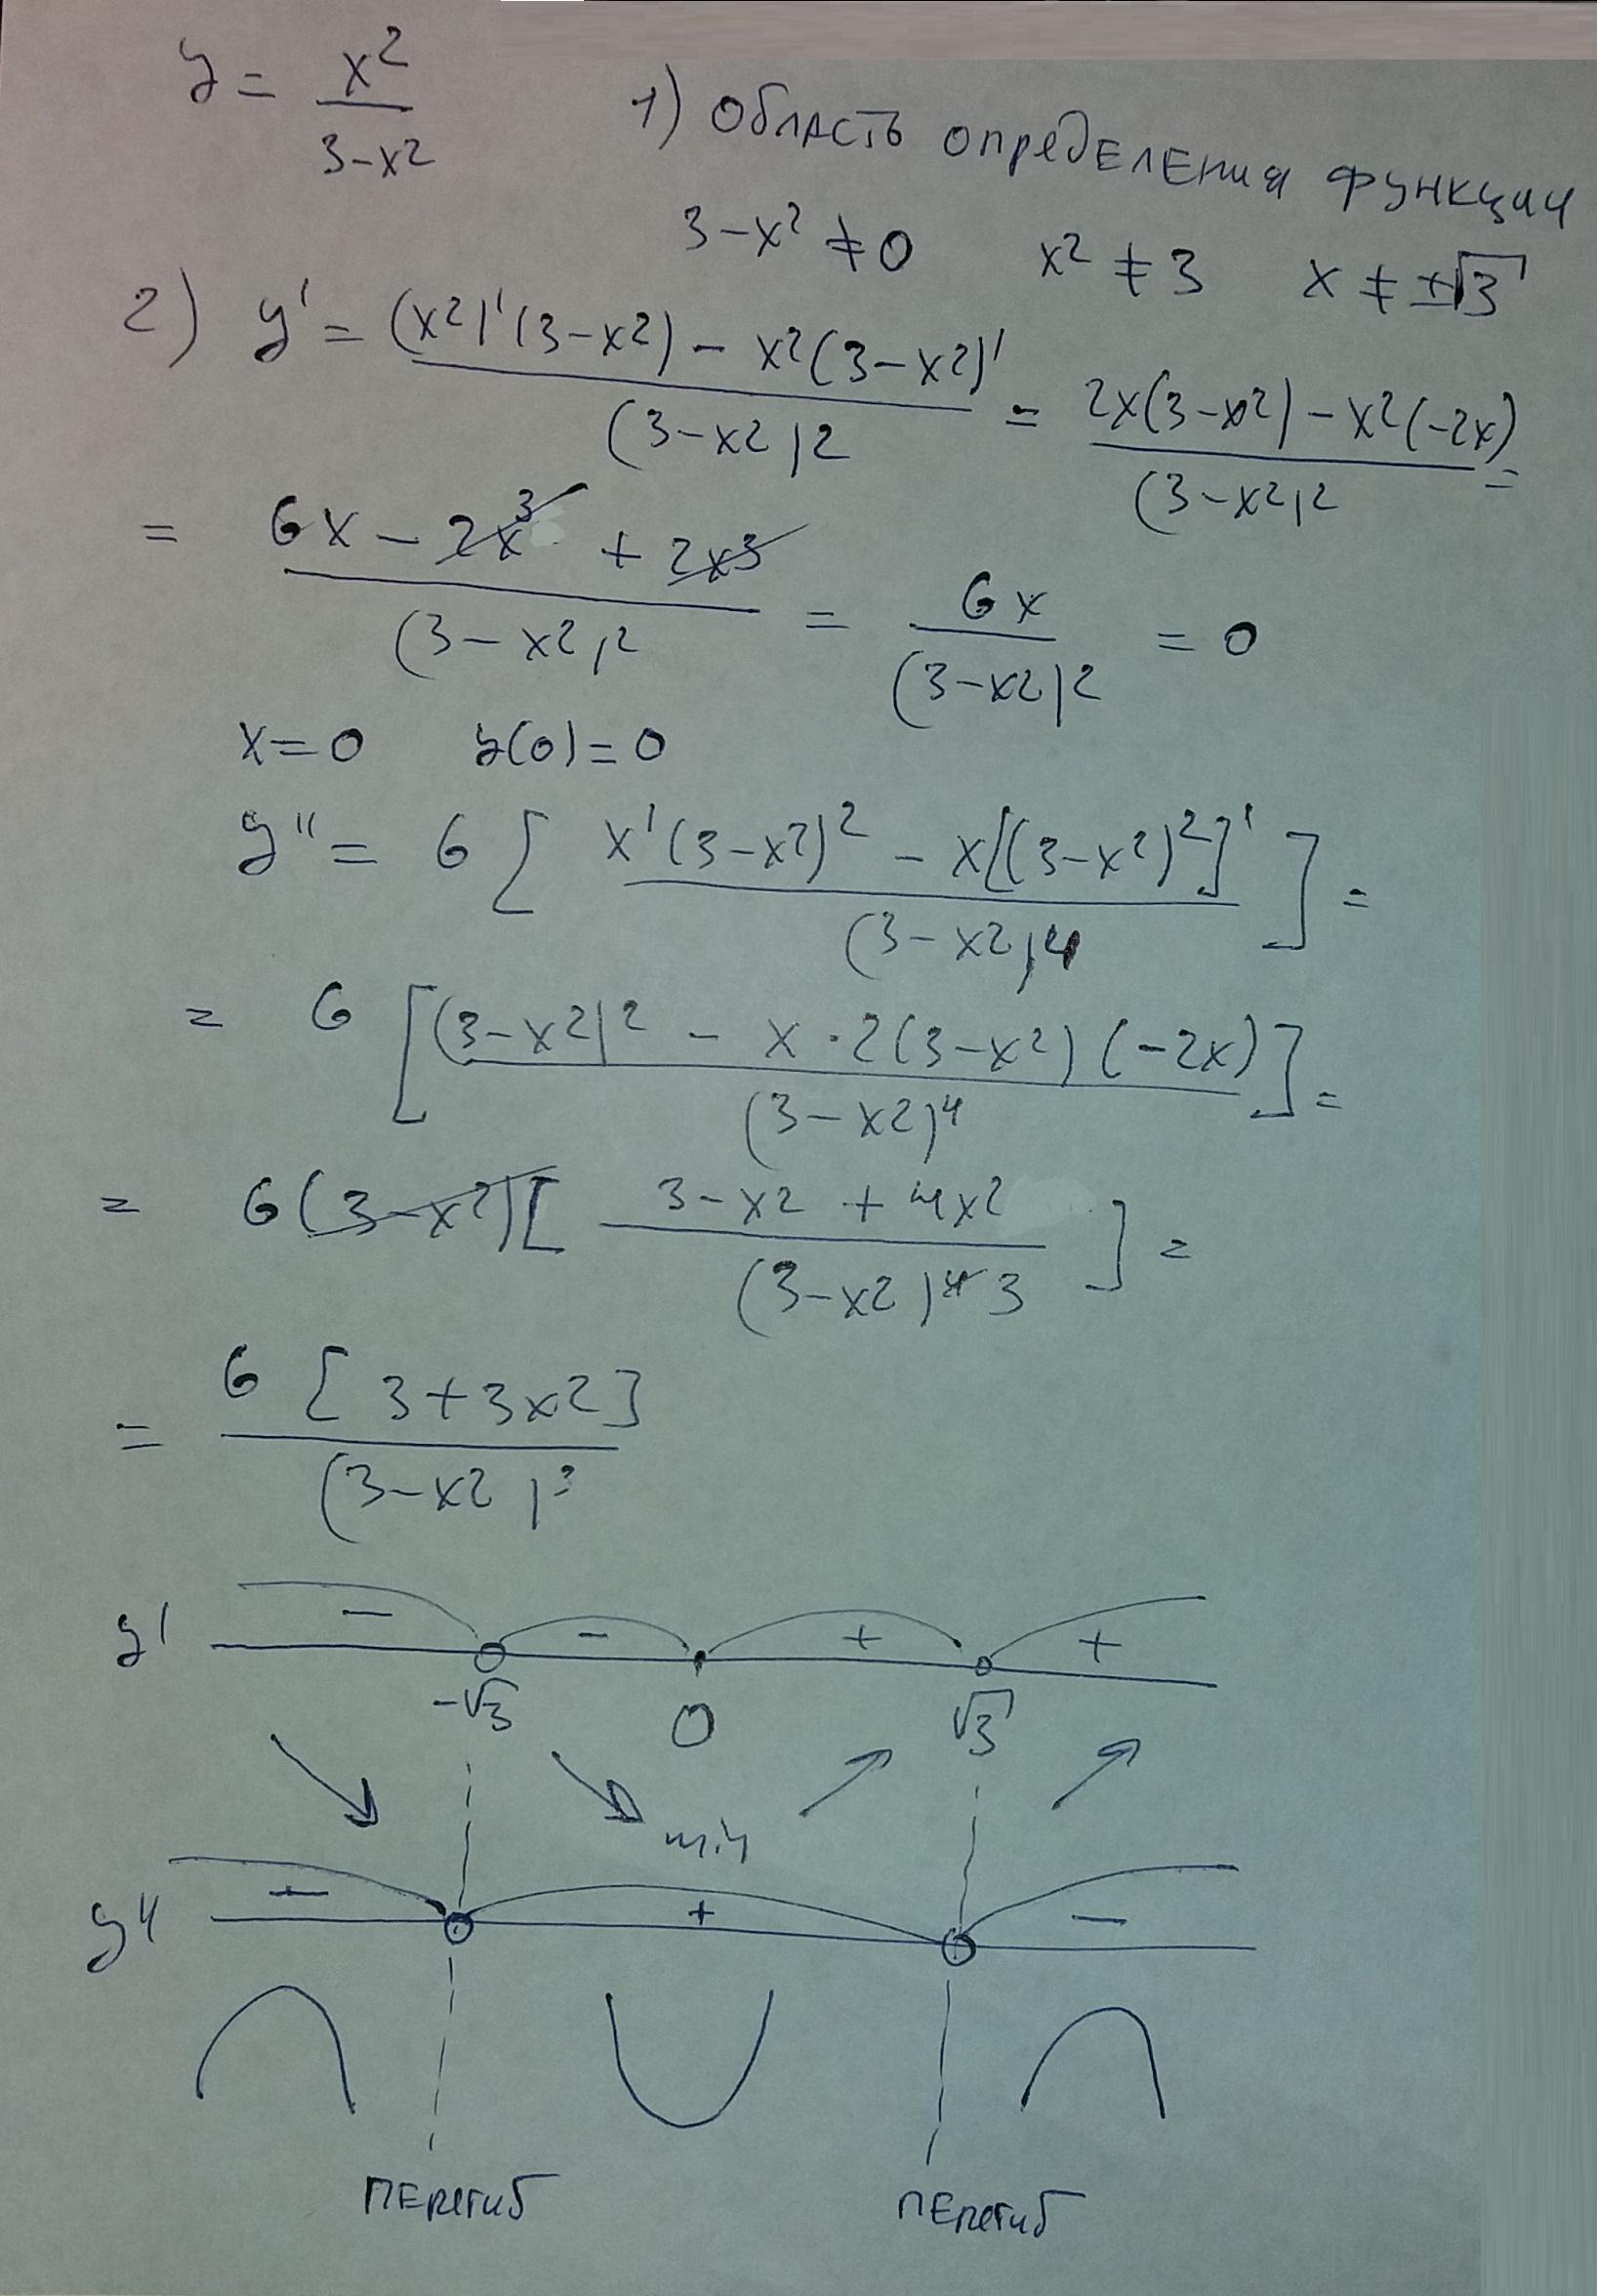 y = x²/(3-x²) 1) Область определения функции
3-x² ≠ 0 x² ≠ 3 x ≠ ±√3
2) y' = ((x²)'(3-x²) - x²(3-x²)')/(3-x²)² = (2x(3-x²) - x²(-2x))/(3-x²)² =
= (6x - 2x³ + 2x³)/(3-x²)² = 6x/(3-x²)² = 0
x=0 y(0)=0
y'' = 6 [ (x'(3-x²)² - x[(3-x²)²]')/(3-x²)⁴ ] =
= 6 [ ((3-x²)² - x·2(3-x²)(-2x))/(3-x²)⁴ ] =
= 6(3-x²) [ (3-x²+4x²)/(3-x²)⁴ 3 ] =
= 6 [3+3x²]/(3-x²)³
y' - - + +
-√3 0 √3
min
y'' - + -
перегиб перегиб